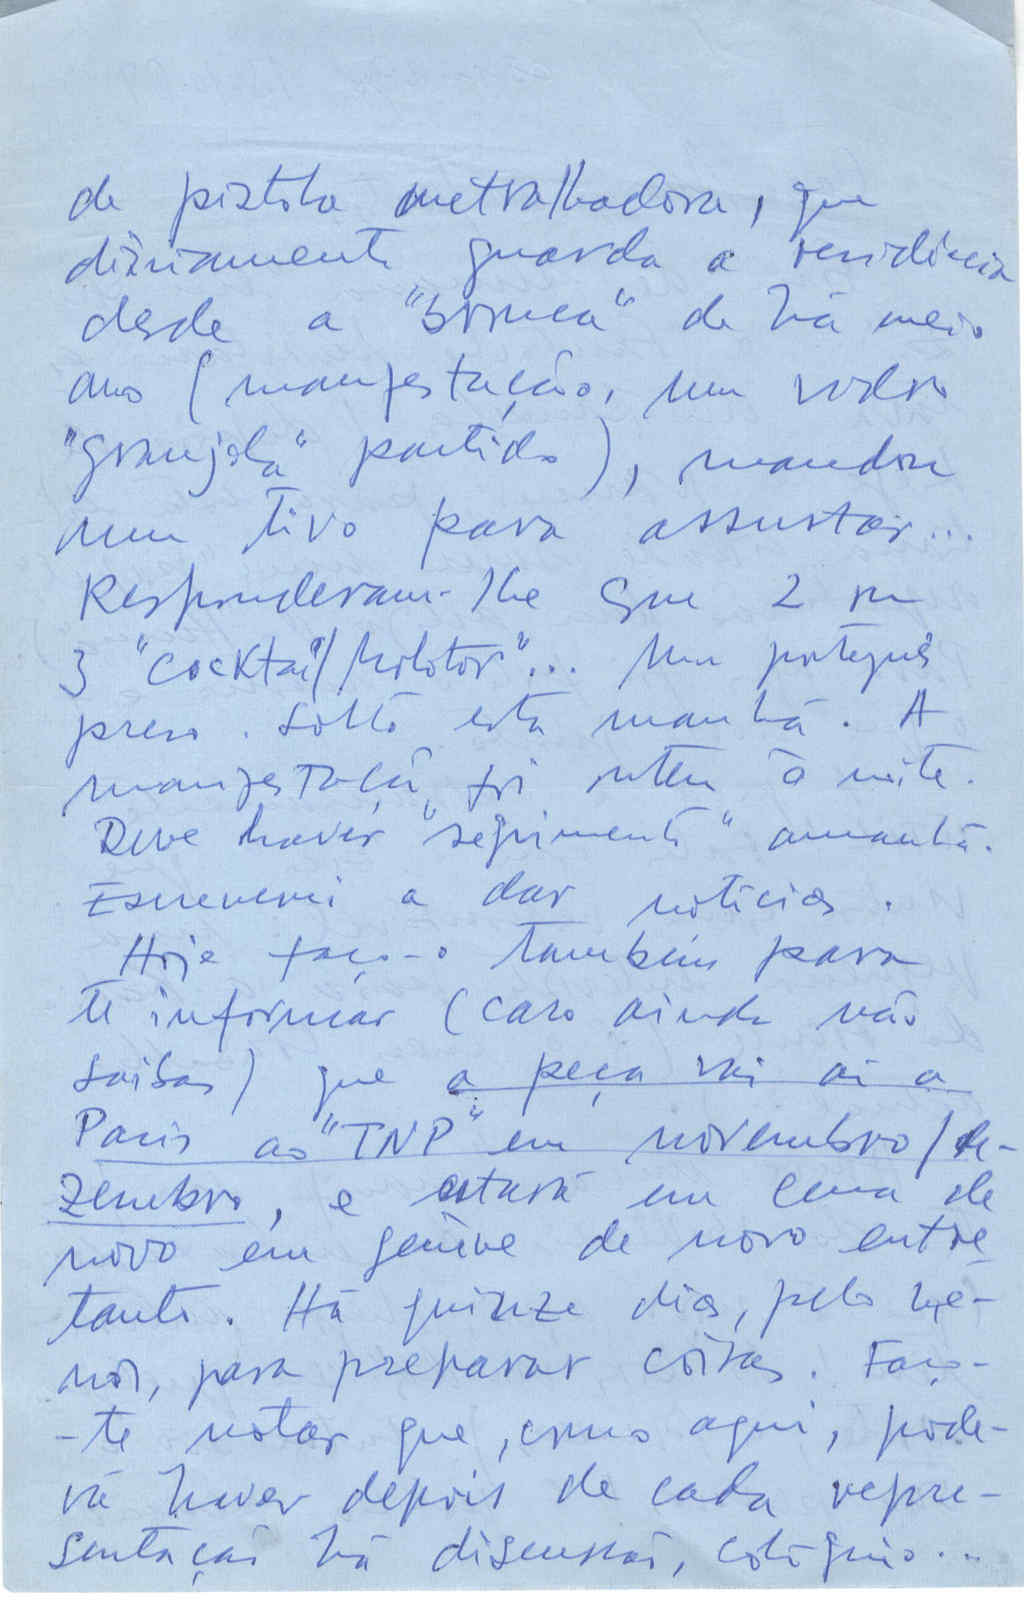 de pistola metralhadora, que
diàriamente guarda a residência
desde a "bronca" de há meio
ano (manifestação, um vidro
"granjola" partido), mandou
um tiro para assustar...
Responderam-lhe que 2 ou
3 "cocktail/Molotov"... Um português
preso. Solto esta manhã. A
manifestação foi ontem à noite.
Deve haver "seguimento" amanhã.
Escreverei a dar notícias.
Hoje faço-o também para
te informar (caso ainda não
saibas) que a peça vai aí a
Paris ao "TNP" em novembro/de-
zembro, e estará em cena de
novo em Genève de novo entre
tanto. Há quinze dias, pelo me-
nos, para preparar coisas. Faço-
-te notar que, como aqui, pode-
rá haver depois de cada repre-
sentação há discussão, colóquio...